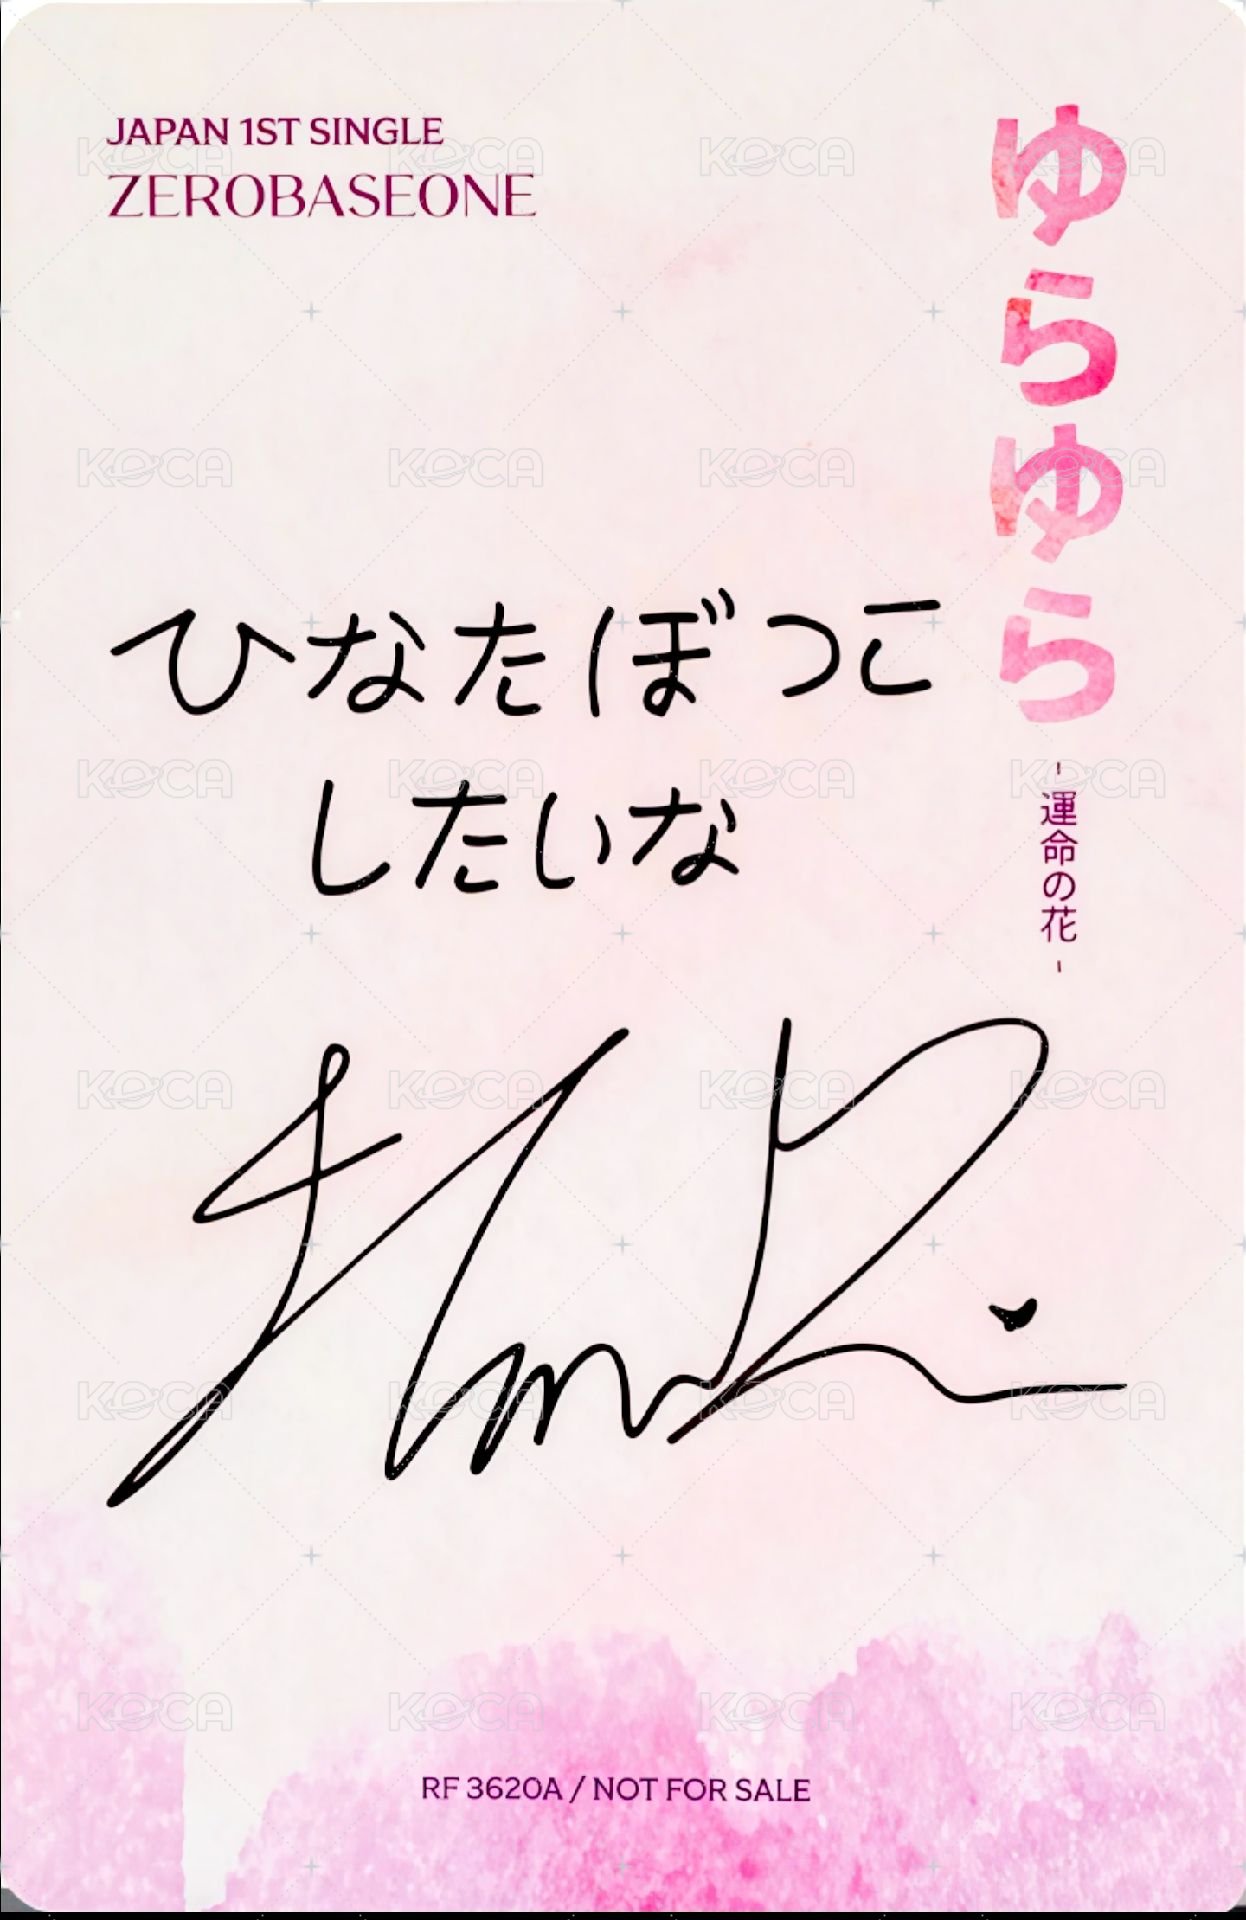 JAPAN 1ST SINGLE
ZEROBASEONE
ゆらゆら
-運命の花-
ひなたぼっこ
したいな
RF 3620A / NOT FOR SALE
KOCA